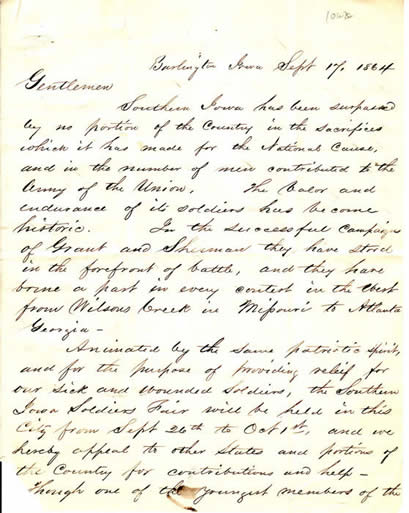 Iowa
Burlington Iowa Sept 17, 1864
Gentlemen
Southern Iowa has been surpassed
by no portion of the Country in the sacrifices
which it has made for the National Cause,
and in the number of men contributed to the
Army of the Union. The Valor and
endurance of its soldiers has become
historic. In the successful Campaigns
of Grant and Sherman they have stood
in the forefront of battle, and they have
borne a part in every contest in the West
from Wilsons Creek in Missouri to Atlanta
Georgia –
Animated by the same patriotic spirit,
and for the purpose of providing relief for
our sick and wounded soldiers, the Southern
Iowa Soldiers Fair will be held in this
City from Sept 26th to Oct 1st, and we
hereby appeal to other States and portions of
the Country for contributions and help –
Though one of the youngest members of the